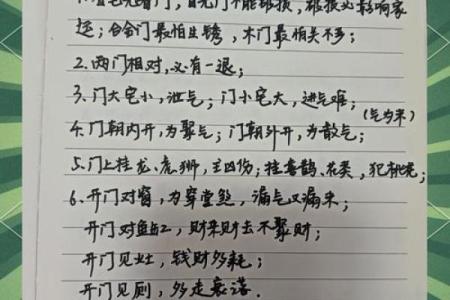 运；合金门最怕生锈，木门最怕关不多；
2.两门相对，必有一退；
3.门大宅小，泄气；门小宅大，进气难；
(气为来)
4.门朝内开，为聚气；门朝外开，为散气；
5.门上挂龙、虎、狮，主凶伤；挂喜鹊、花类，犯桃花；
6.开门对窗，为穿堂煞，漏气又漏来；
开门对鱼缸，财来财去不聚财；
开门见灶，钱财多耗；
开门见厕，多走衰落.